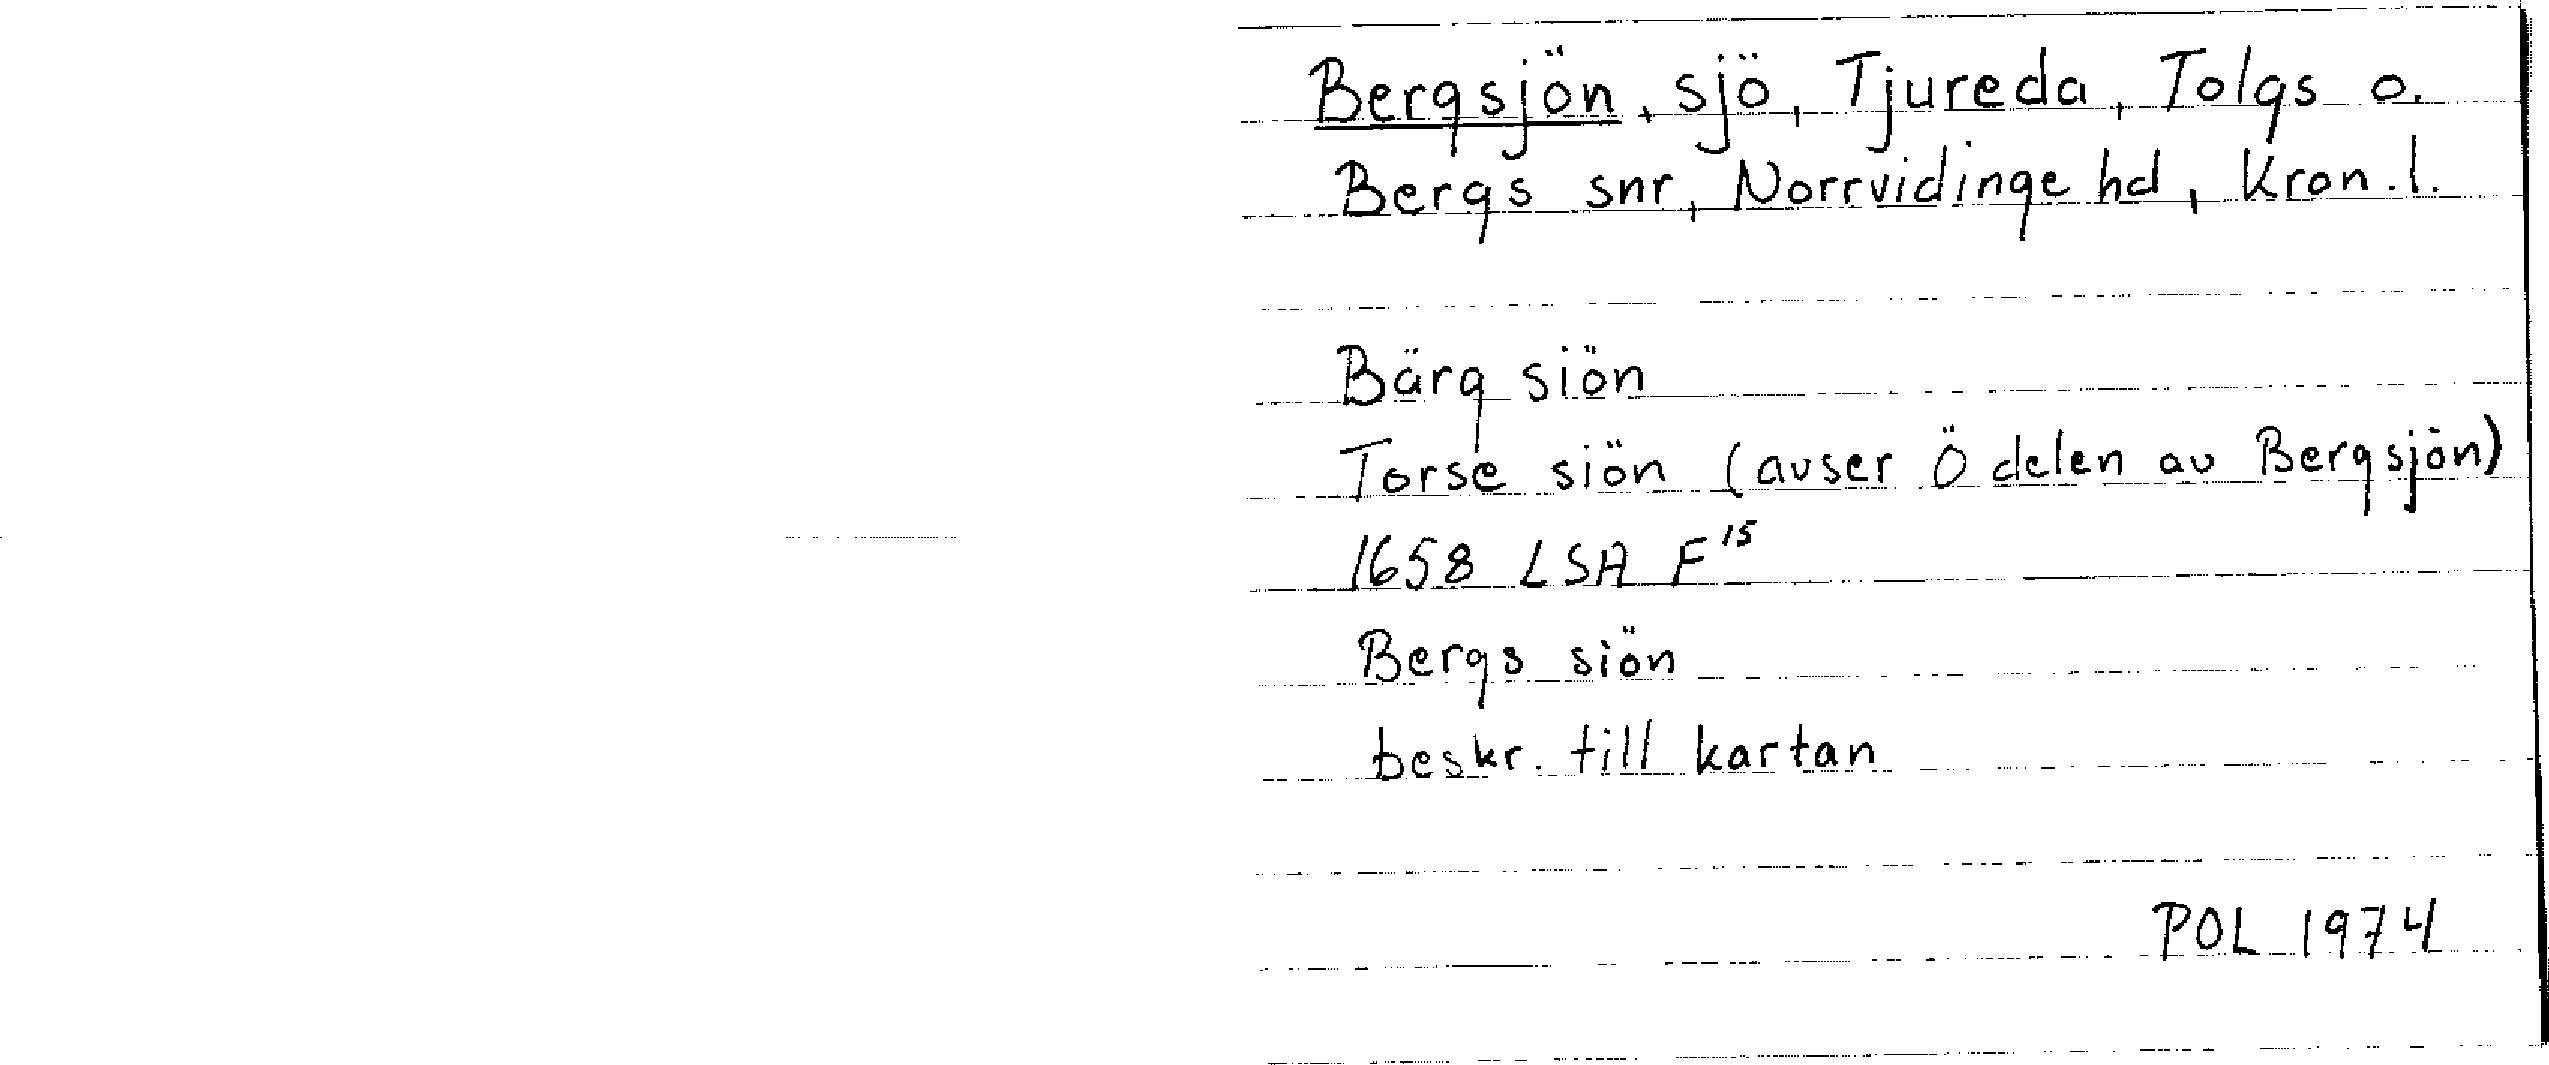 Bergsjön, sjö, Tjureda, Tolgs o.
Bergs snr, Norrvidinge hd, Kron. l.
Bärg siön
Torse siön (avser Ö delen av Bergsjön)
1658 LSA F¹⁵
Bergs siön
beskr. till kartan
POL 1974